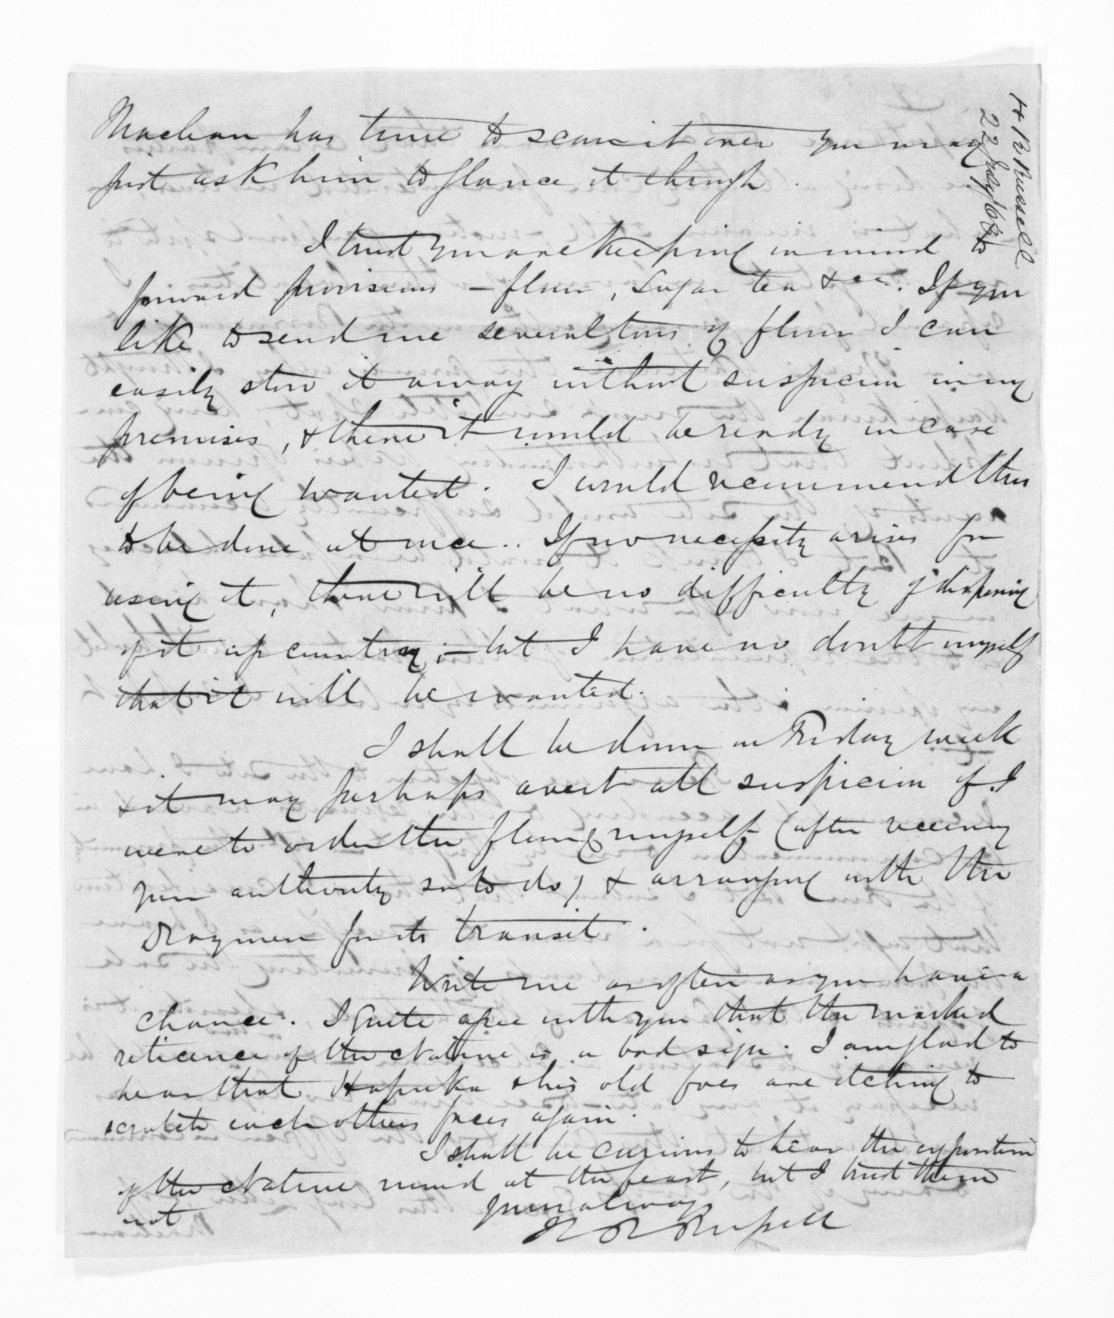 Maclean has time to scan it over you may
just ask him to glance it through.
I trust you are keeping in mind to
forward provisions - flour, sugar tea &ca. If you
like to send me several tons of flour I can
easily stow it away without suspicion in my
premises, & there it would be ready in case
of being wanted. I would recommend this
to be done at once. If no necessity arises for
using it, there will be no difficulty of disposing
of it up country; - but I have no doubt myself
that it will be wanted.
I shall be down on Friday week
& it may perhaps avert all suspicion if I
were to order the flour myself (after receiving
your authority so to do) & arranging with the
Draymen for its transit.
Write me as often as you have a
chance. I quite agree with you that the marked
reticence of the Native is a bad sign. I am glad to
hear that Hapuka & his old foes are itching to
scratch each others faces again.
I shall be curious to hear the exposition
of the Native mind at the feast, but I trust them
not
Yours always
H R Russell
H R Russell
22 July